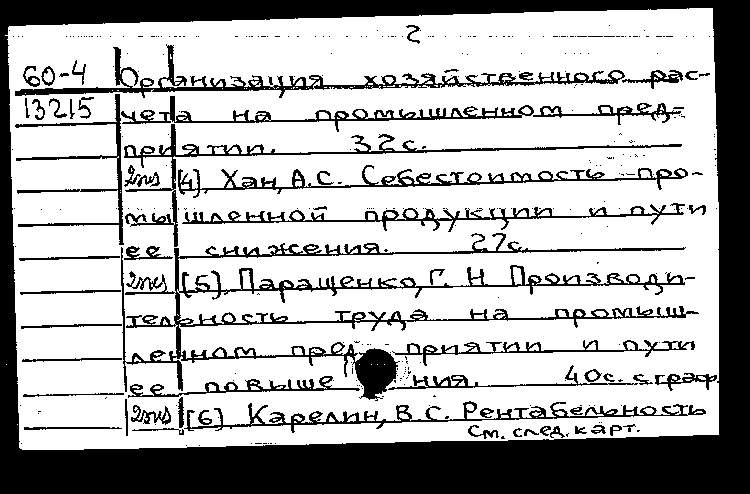 2
60-4 Организация хозяйственного рас-
13215 чета на промышленном пред-
приятии. 32с.
2экз [4]. Хан, А.С. Себестоимость про-
мышленной продукции и пути
ее снижения. 27с.
2экз [5]. Паращенко, Г. Н Производи-
тельность труда на промыш-
ленном предприятии и пути
ее повышения. 40с. с граф.
2экз [6] Карелин, В.С. Рентабельность
См. след. карт.